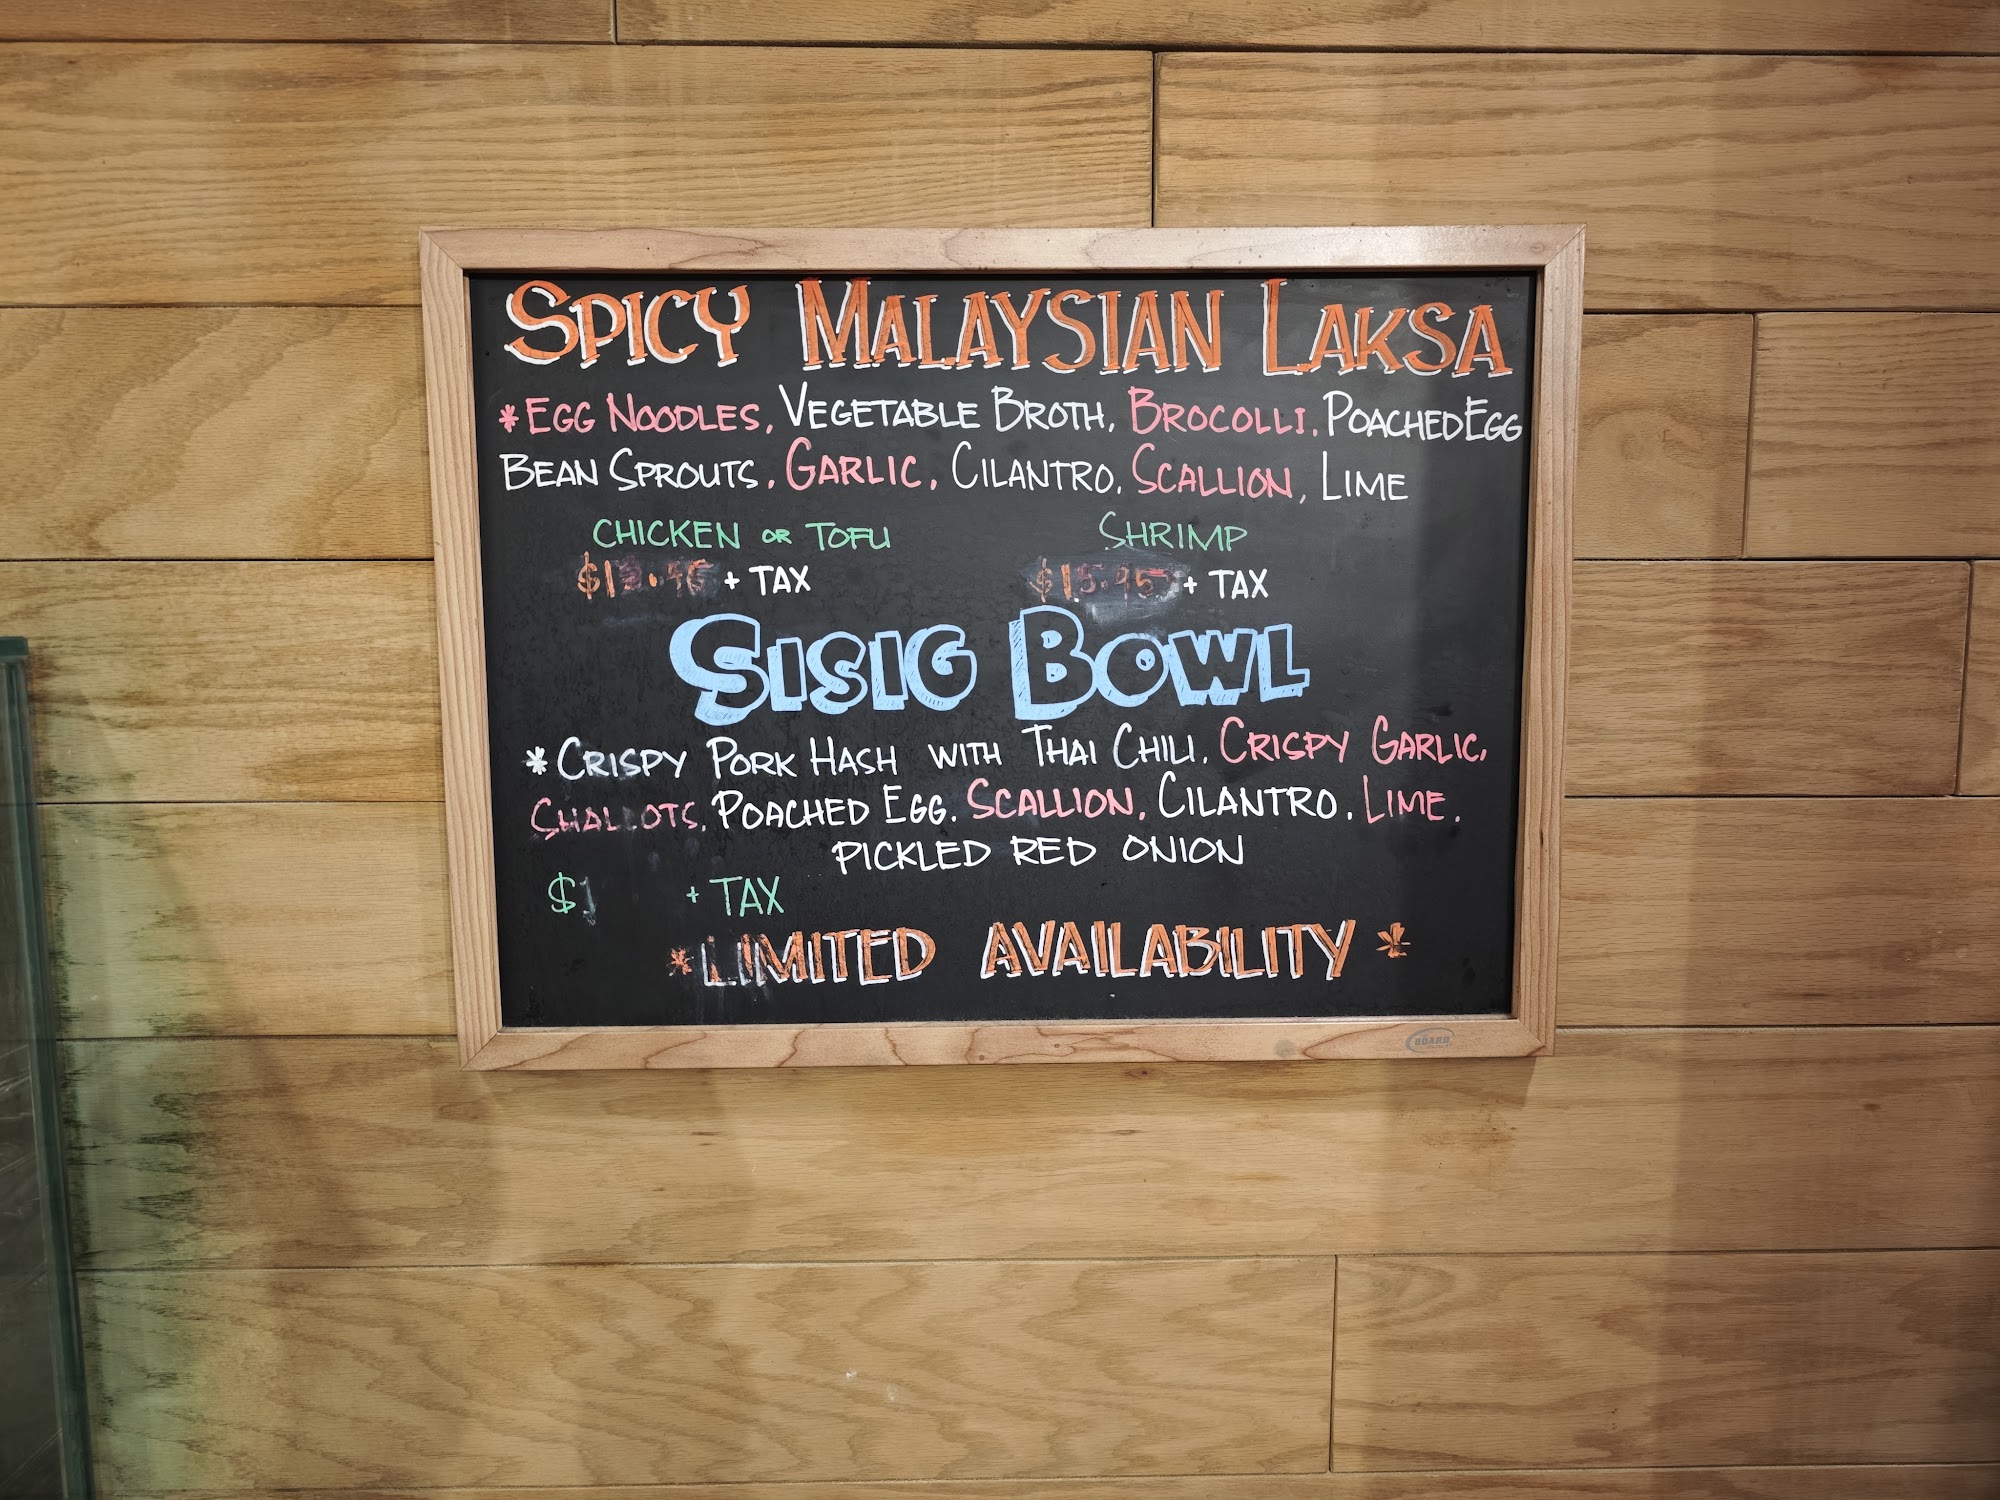 SPICY MALAYSIAN LAKSA
* EGG NOODLES, VEGETABLE BROTH, BROCOLLI, POACHED EGG
BEAN SPROUTS, GARLIC, CILANTRO, SCALLION, LIME
CHICKEN OR TOFU SHRIMP
+ TAX $15.95 + TAX
SISIG BOWL
* CRISPY PORK HASH WITH THAI CHILI, CRISPY GARLIC,
SHALLOTS, POACHED EGG, SCALLION, CILANTRO, LIME,
PICKLED RED ONION
$1 + TAX
*LIMITED AVAILABILITY *
BOARD